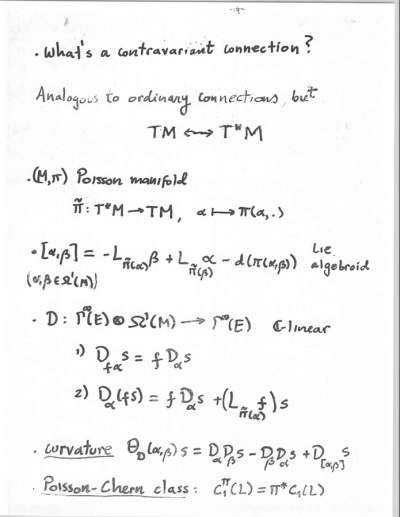 -17-
· What's a contravariant connection?
Analogous to ordinary connections, but
TM ↔ T*M
· (M,π) Poisson manifold
π̃ : T*M → TM, α ↦ π(α, .)
· [α,β] = -L_π̃(α) β + L_π̃(β) α - d(π(α,β)) Lie algebroid
(α,β ∈ Ω¹(M))
· D : Γ^∞(E) ⊗ Ω¹(M) → Γ^∞(E) ℂ-linear
1) D_fα s = f D_α s
2) D_α(fs) = f D_α s + (L_π̃(α) f) s
· curvature Θ_D(α,β) s = D_α D_β s - D_β D_α s + D_[α,β] s
· Poisson-Chern class: C₁^π(L) = π* C₁(L)